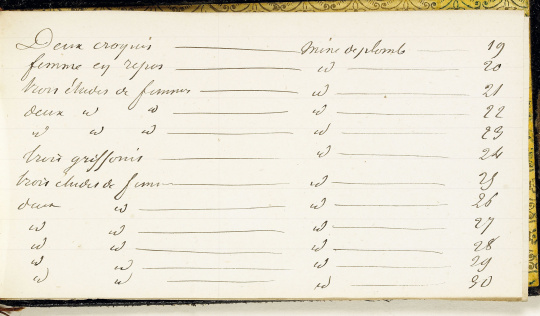 Deux croquis mine de plomb 19
femme en repos id 20
trois études de femmes id 21
deux id id id 22
id id id id 23
trois griffonis id 24
trois études de femme id 25
deux id id 26
id id id 27
id id id 28
id id id 29
id id id 30